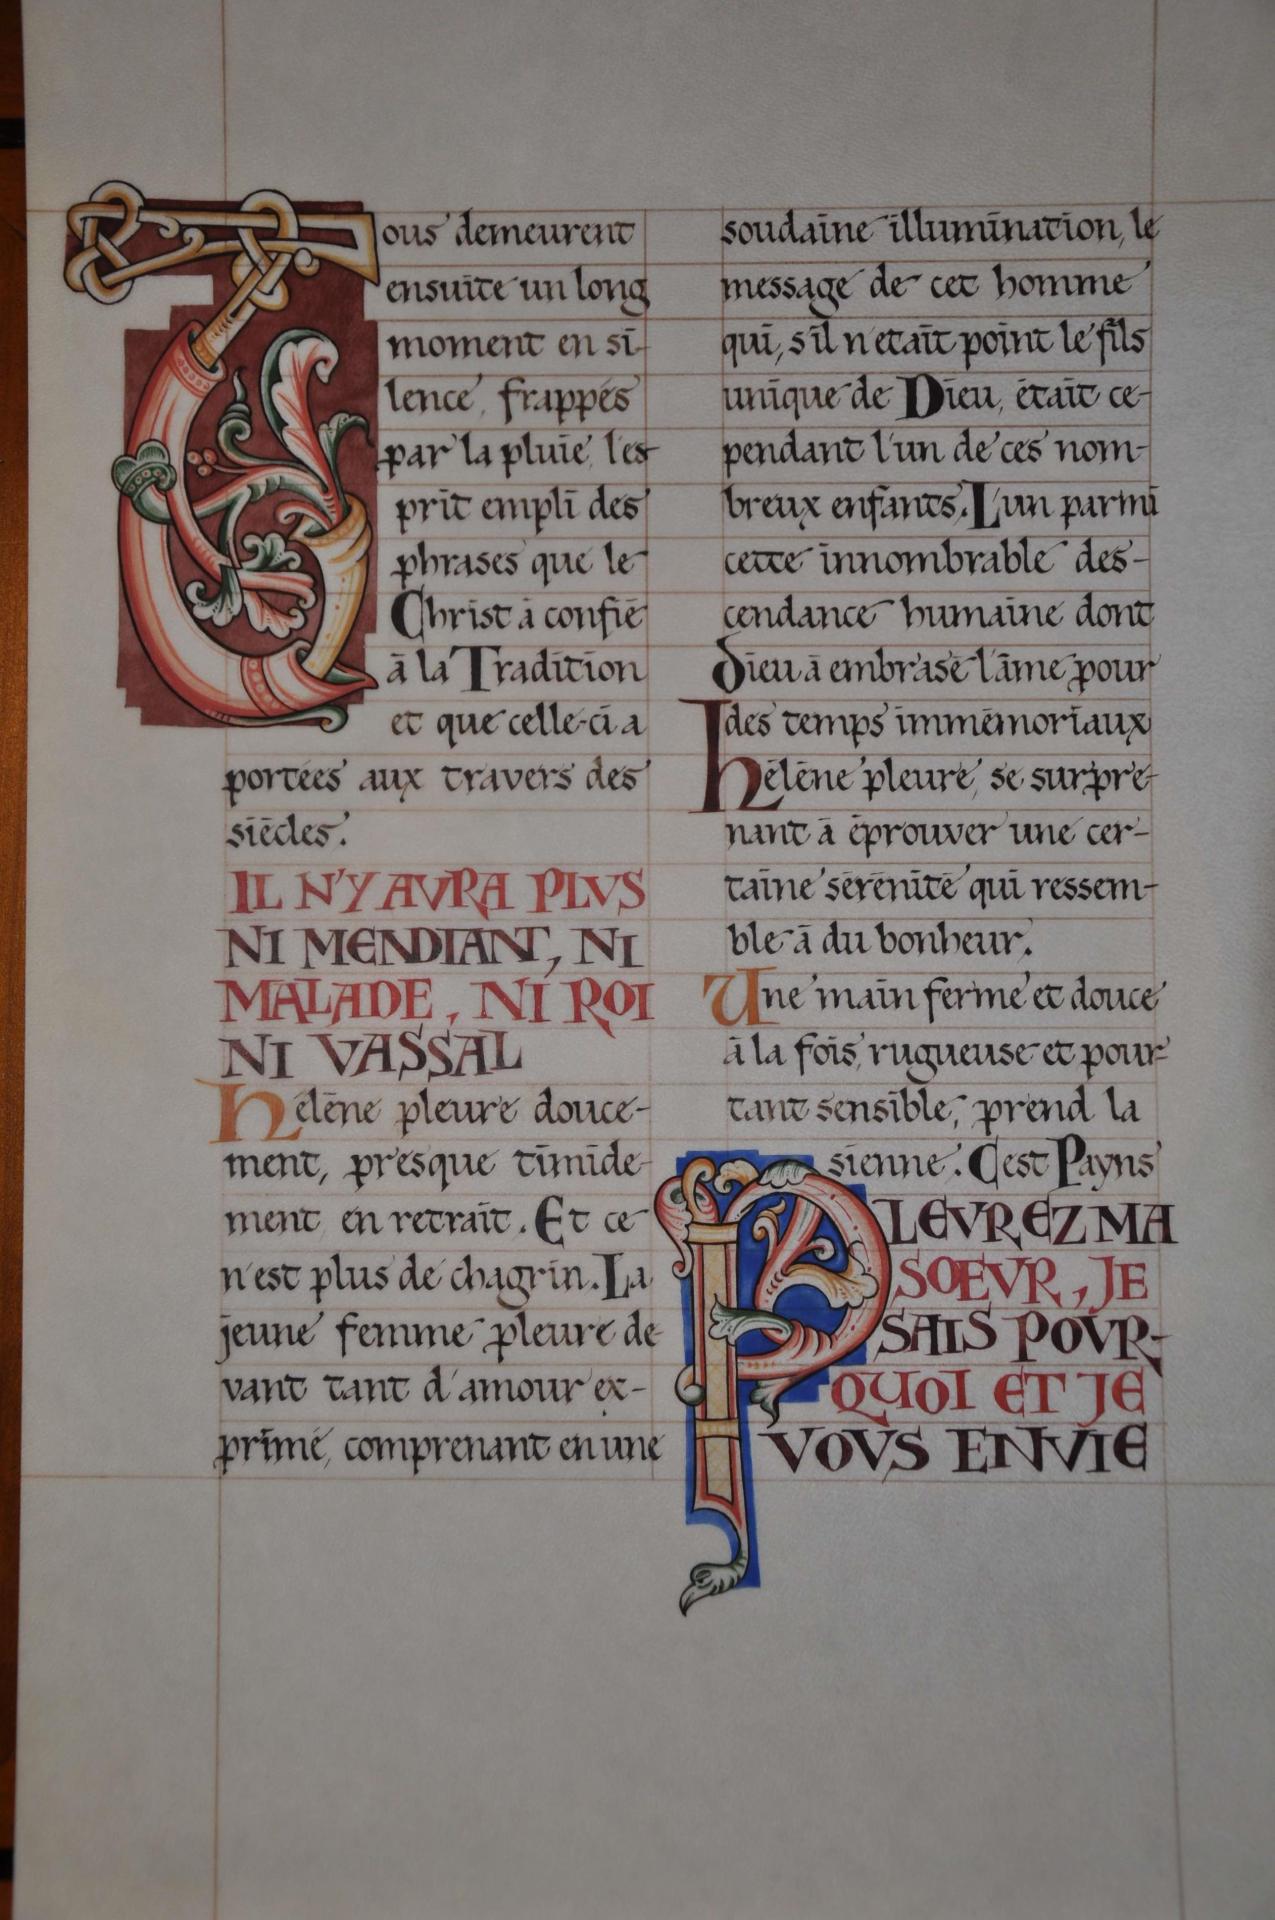 Tous demeurent
ensuite un long
moment en si-
lence, frappés
par la pluie, l'es-
prit empli des
phrases que le
Christ à confié
à la Tradition
et que celle-ci a
portées aux travers des
siècles.
IL N'Y AVRA PLVS
NI MENDIANT, NI
MALADE, NI ROI
NI VASSAL
Hélène pleure douce-
ment, presque timide-
ment, en retrait. Et ce
n'est plus de chagrin. La
jeune femme pleure de-
vant tant d'amour ex-
primé, comprenant en une
soudaine illumination, le
message de cet homme
qui, s'il n'etait point le fils
unique de Dieu, était ce-
pendant l'un de ces nom-
breux enfants. L'un parmi
cette innombrable des-
cendance humaine dont
Dieu à embrasé l'âme pour
des temps immémoriaux
Hélène pleure, se surpre-
nant à éprouver une cer-
taine sérénité qui ressem-
ble à du bonheur.
Une main ferme et douce
à la fois, rugueuse et pour-
tant sensible, prend la
sienne. C'est Payns
PLEVREZ MA
SOEVR, JE
SAIS POVR-
QUOI ET JE
VOVS ENVIE